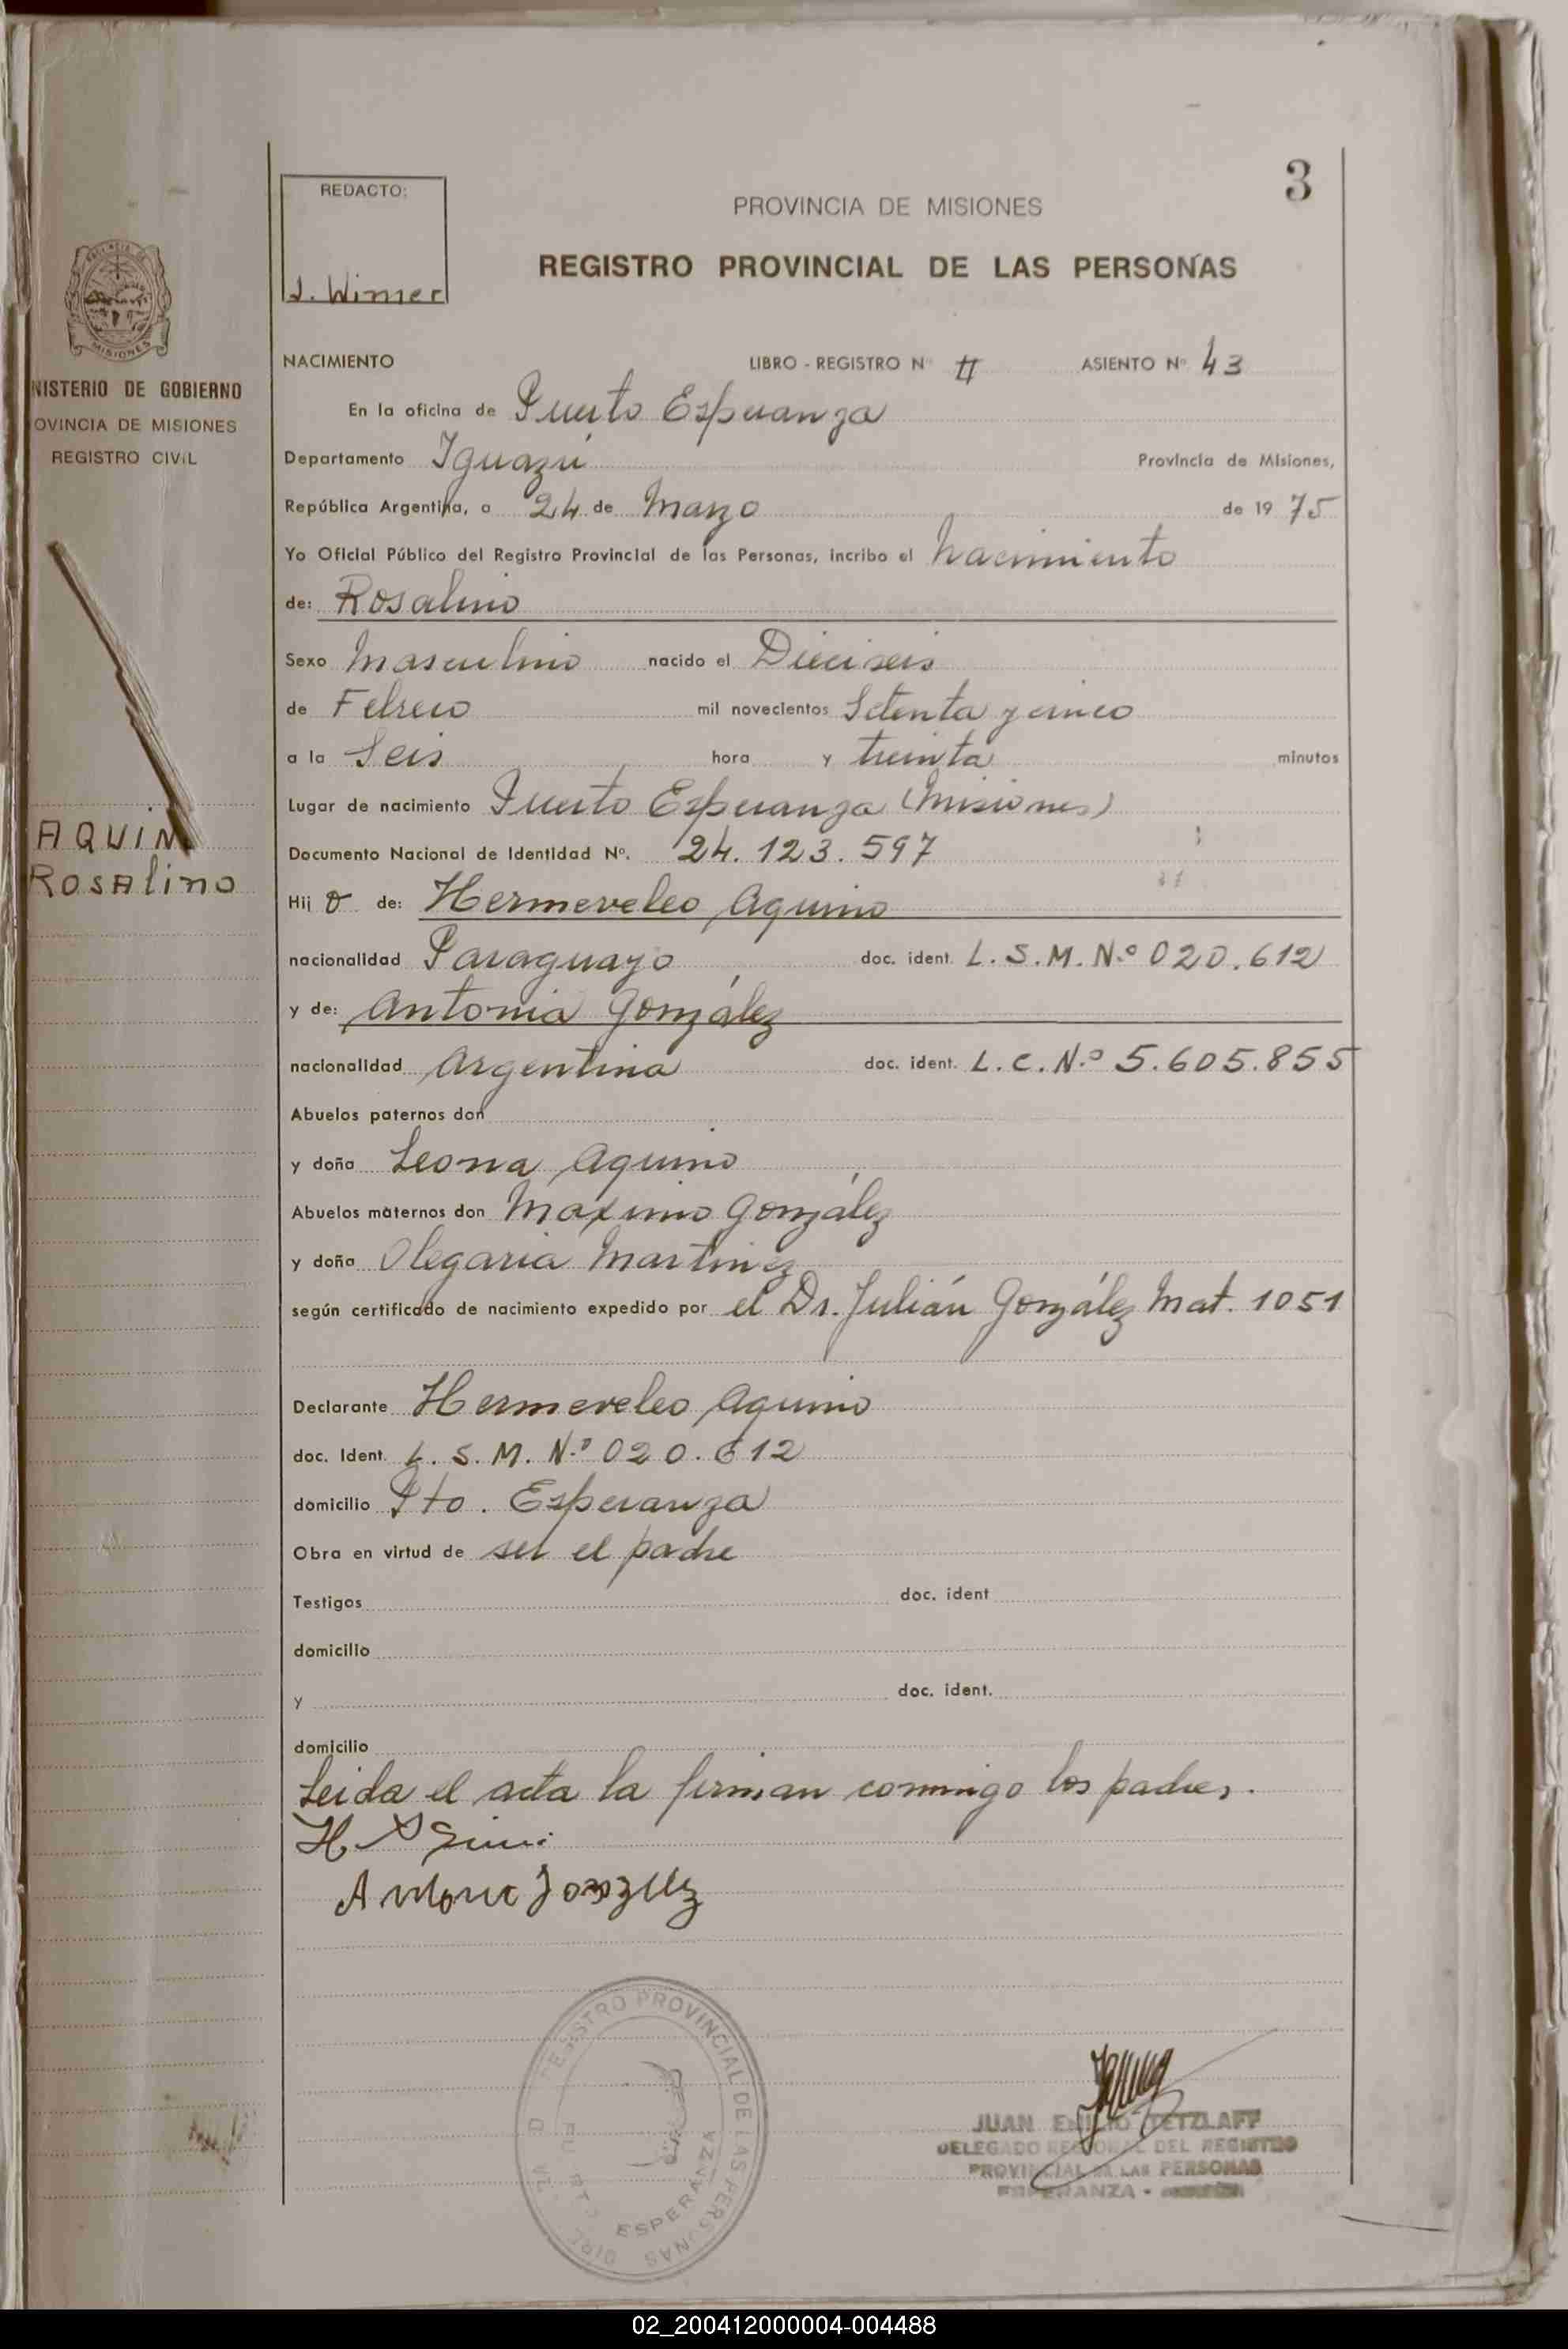 3
REDACTO:
J. Wimer
PROVINCIA DE MISIONES
REGISTRO PROVINCIAL DE LAS PERSONAS
MISIONES
NISTERIO DE GOBIERNO
OVINCIA DE MISIONES
REGISTRO CIVIL
NACIMIENTO LIBRO - REGISTRO Nº II ASIENTO Nº 43
En la oficina de Puerto Esperanza
Departamento Iguazú Provincia de Misiones,
República Argentina, a 24 de Marzo de 19 75
Yo Oficial Público del Registro Provincial de las Personas, incribo el Nacimiento
de: Rosalino
Sexo Masculino nacido el Dieciseis
de Febrero mil novecientos Setenta y cinco
a la Seis hora y treinta minutos
Lugar de nacimiento Puerto Esperanza (Misiones)
AQUINO
Rosalino
Documento Nacional de Identidad Nº. 24.123.597
Hij o de: Hermereleo Aquino
nacionalidad Paraguayo doc. ident. L.S.M.N.º 020.612
y de: Antonia González
nacionalidad Argentina doc. ident. L.C.N.º 5.605.855
Abuelos paternos don
y doña Leona Aquino
Abuelos maternos don Maximo González
y doña Olegaria Martinez
según certificado de nacimiento expedido por el Dr. Julián González Mat. 1051
Declarante Hermereleo Aquino
doc. Ident. L.S.M.N.º 020.612
domicilio Pto. Esperanza
Obra en virtud de ser el padre
Testigos doc. ident
domicilio
y doc. ident.
domicilio
Leida el acta la firman conmigo los padres.
REGISTRO PROVINCIAL DE LAS PERSONAS
ESPERANZA
JUAN EMILIO TETZLAFF
DELEGADO REGIONAL DEL REGISTRO
PROVINCIAL DE LAS PERSONAS
ESPERANZA -
02_200412000004-004488